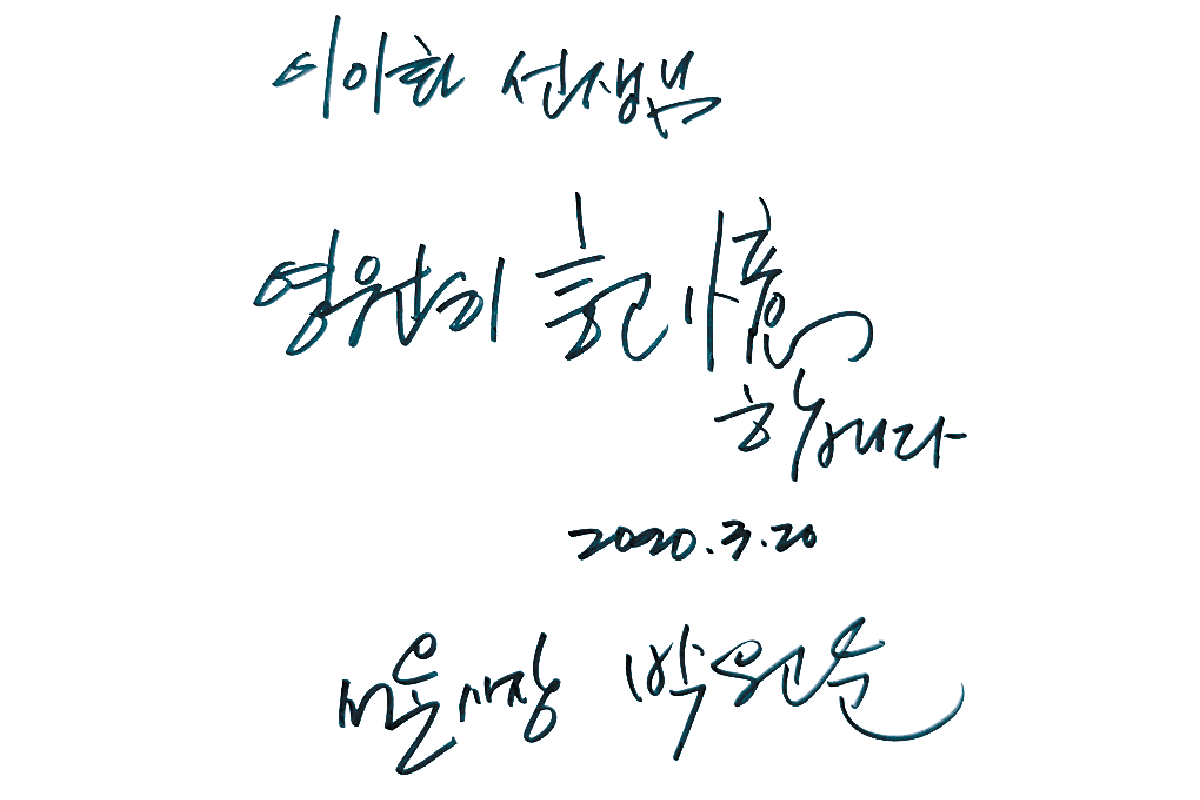 이이화 선생님
영원히 記憶
하겠습니다
2020.3.20
서울시장 박원순